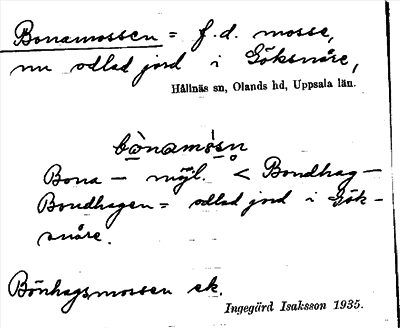 Bonamossen = f.d. mosse,
nu odlad jord i Göksnåre,
Hållnäs sn, Olands hd, Uppsala län.
bònamɷ́sn̥
Bona – möjl. < Bondhag–
Bondhagen = odlad jord i Gök-
snåre.
Bönhagsmossen ek.
Ingegärd Isaksson 1935.